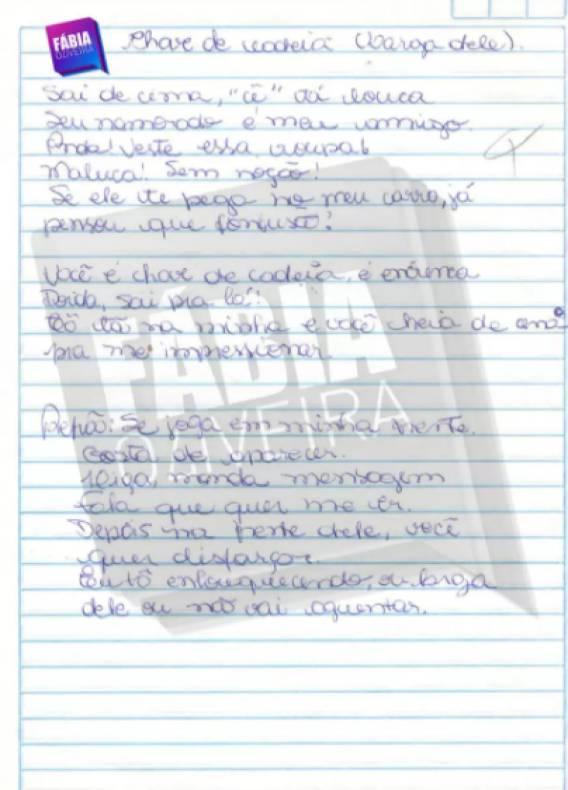 FÁBIA
OLIVEIRA
Chave de cadeia (Larga dele).
Sai de cima, "cê" tá louca
Seu namorado é meu amigo
Anda! Veste essa roupa!
Maluca! Sem noção!
Se ele te pega no meu carro, já
pensou que confusão!
Você é chave de cadeia, é encrenca
Doida, sai pra lá!
Eu tô na minha e você cheia de
pra me impressionar
Refrão: Se joga em minha frente.
Gosta de aparecer.
Liga, manda mensagem
fala que quer me ver.
Depois na frente dele, você
quer disfarçar.
Eu tô enlouquecendo, ou larga
dele ou não vai aguentar.
FÁBIA
OLIVEIRA